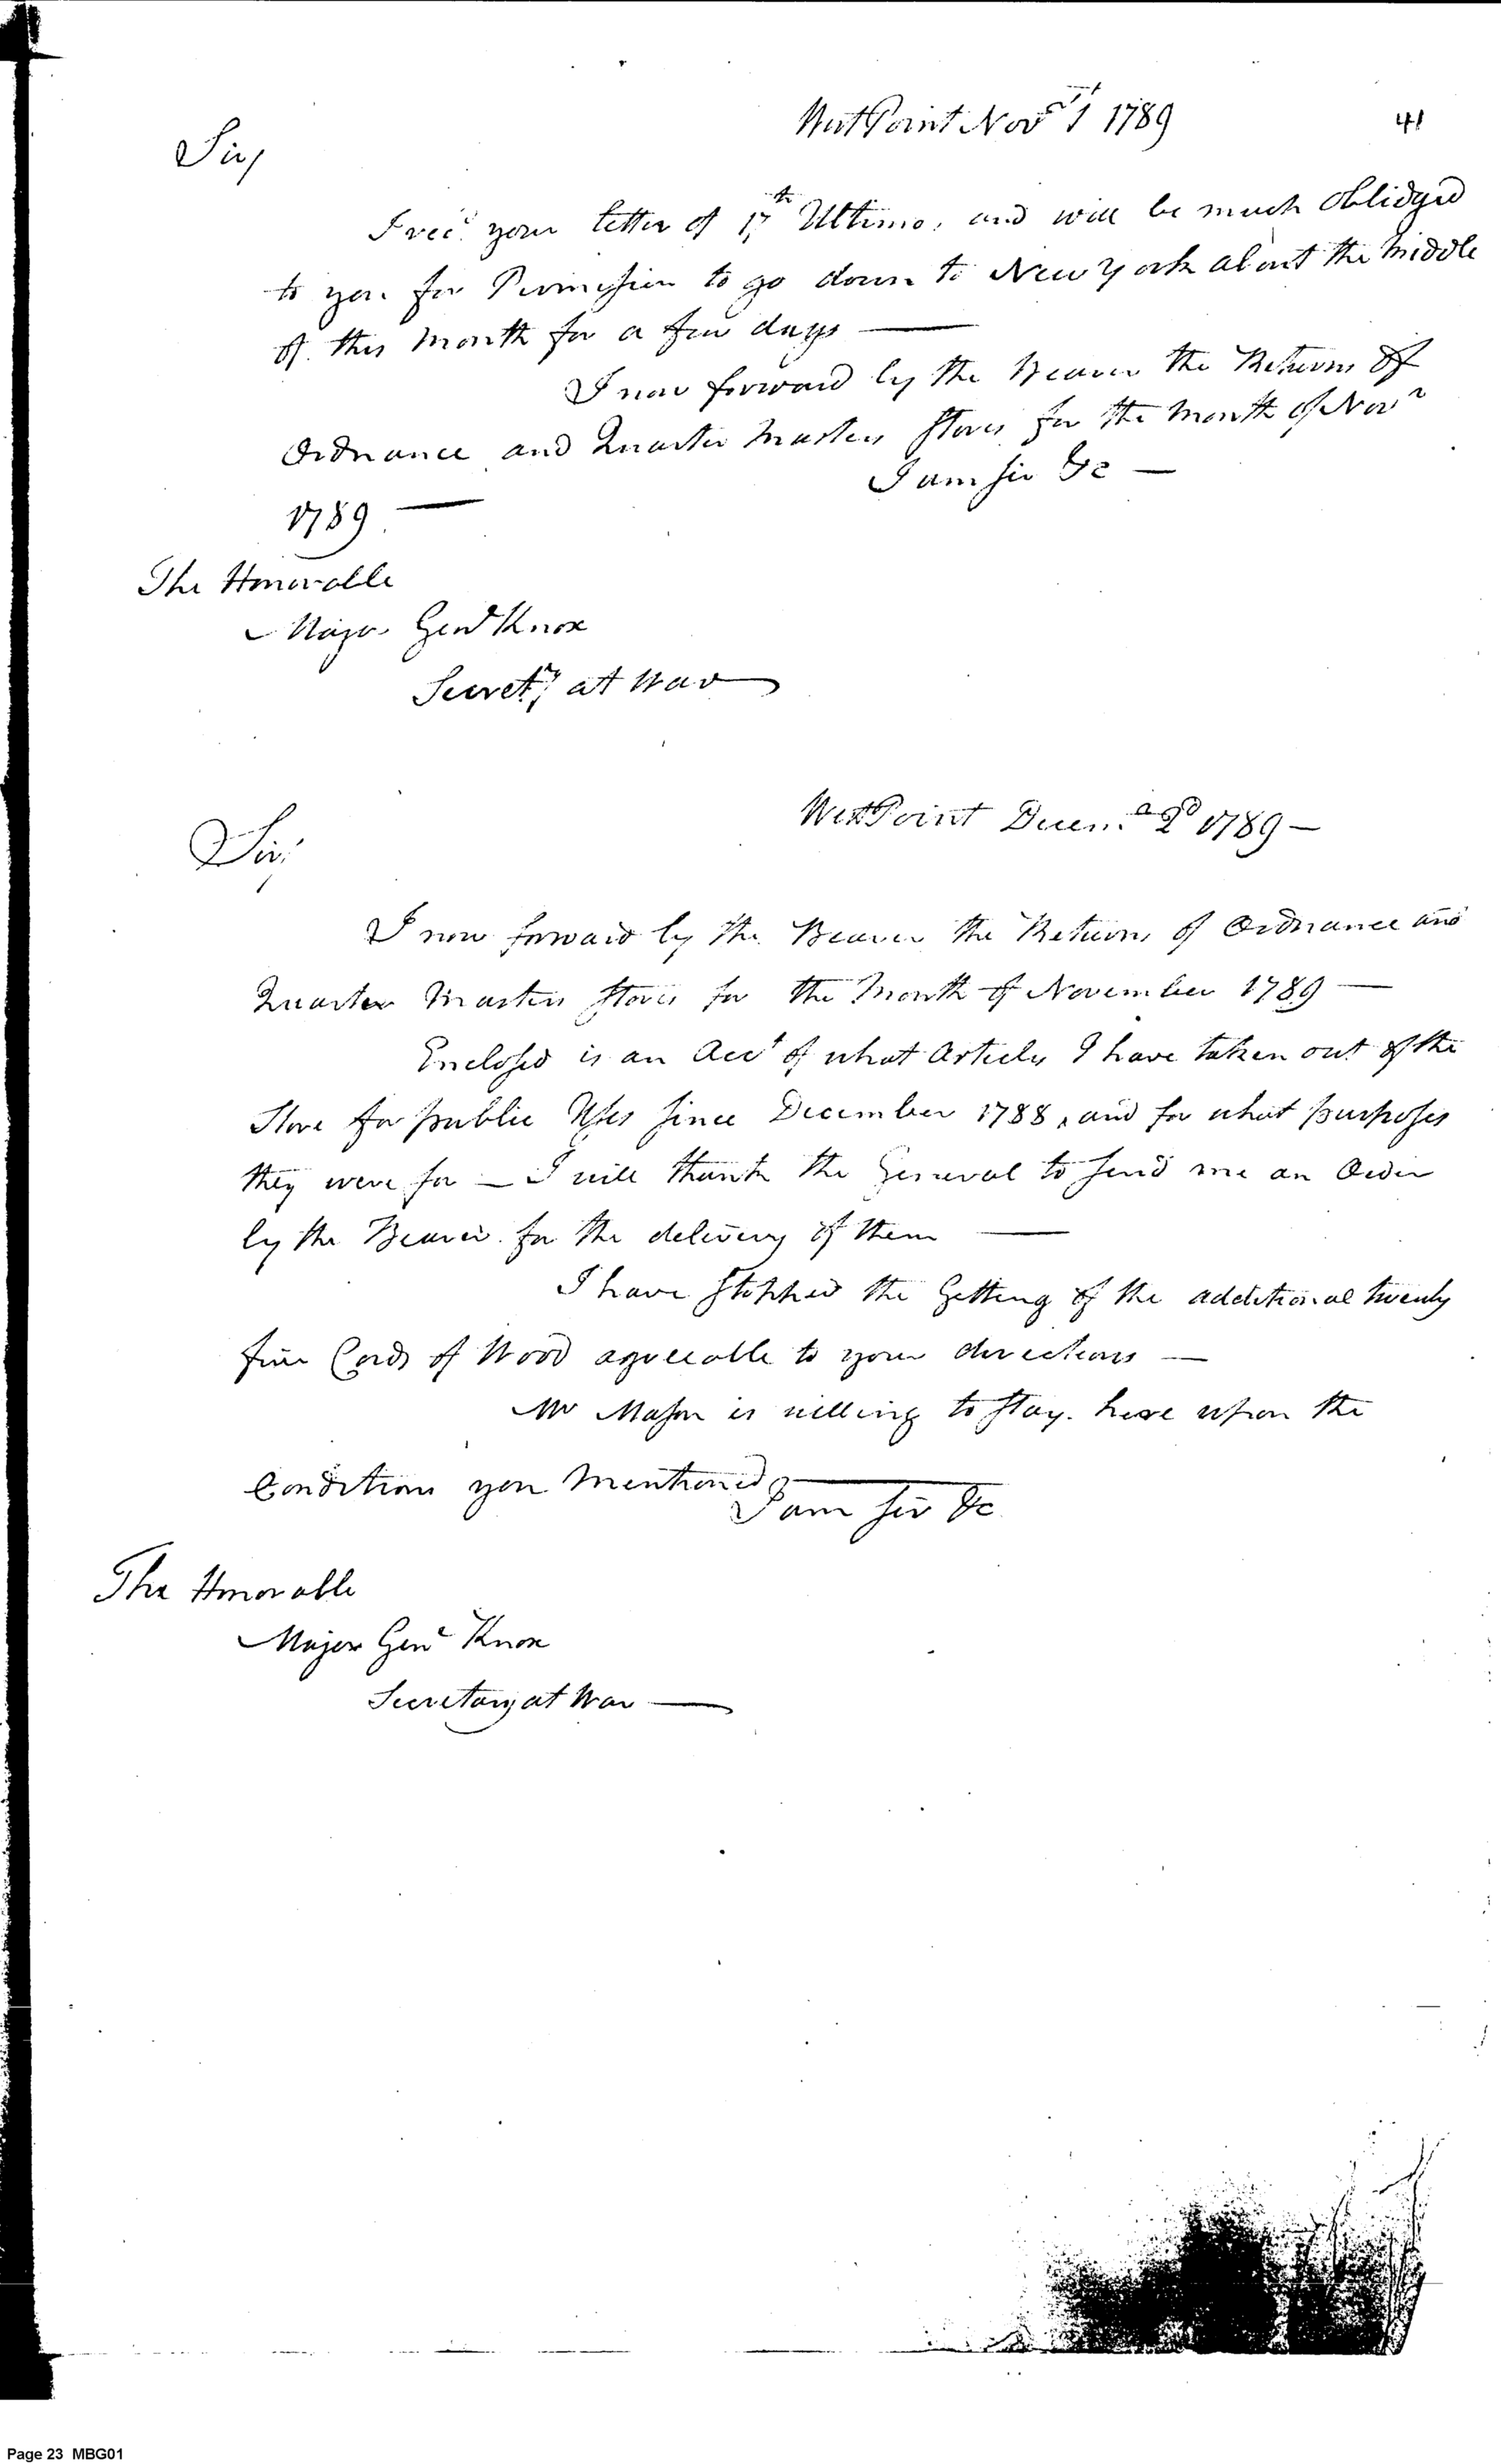 West Point Novr 1st 1789
41
Sir,
I recd your letter of 17th Ultimo, and will be much oblidged
to you for Permission to go down to New York about the Middle
of this Month for a few days —
I now forward by the Bearer the Returns of
Ordnance and Quarter Masters Stores for the Month of Novr
1789 —
I am sir &c —
The Honorable
Major Genl Knox
Secrety at War
West Point Decemr 2d 1789 —
Sir,
I now forward by the Bearer the Returns of Ordnance and
Quarter Masters Stores for the Month of November 1789 —
Enclosed is an Acct of what Articles I have taken out of the
Store for public Uses since December 1788, and for what purposes
they were for — I will thank the General to send me an Order
by the Bearer for the delivery of them —
I have stopped the getting of the additional twenty
five Cords of Wood agreeable to your directions —
Mr Mason is willing to stay here upon the
Condition you Mentioned —
I am sir &c
The Honorable
Major Genl Knox
Secretary at War —
Page 23 MBG01